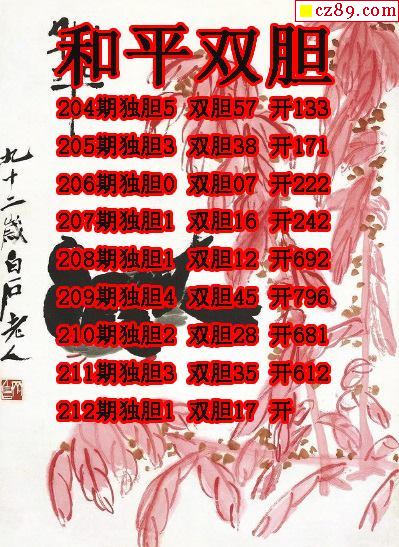 cz89.com
和平双胆
204期独胆5 双胆57 开133
205期独胆3 双胆38 开171
206期独胆0 双胆07 开222
207期独胆1 双胆16 开242
208期独胆1 双胆12 开692
209期独胆4 双胆45 开796
210期独胆2 双胆28 开681
211期独胆3 双胆35 开612
212期独胆1 双胆17 开
九十二岁白石老人